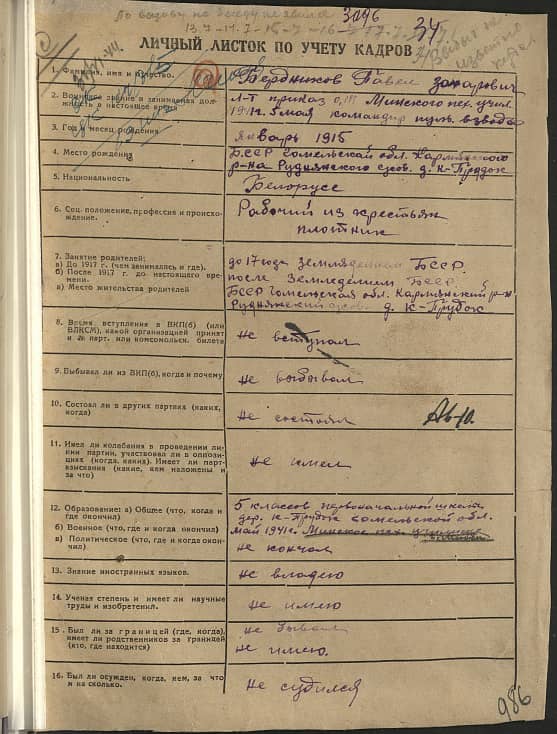 По вызову на беседу не явился
3096
34
13.7-14.7-15-7-16-7-17.7
ЛИЧНЫЙ ЛИСТОК ПО УЧЕТУ КАДРОВ
1. Фамилия, имя и отчество.
Бердников Павел Захарович
2. Воинское звание и занимаемая дол-
жность в настоящее время
Л-т приказ Минского пех. учил.
1941г. 5 мая командир пуль. взвода
3. Год и месяц рождения
январь 1915
4. Место рождения
БССР Гомельской обл. Кармянского
р-на Руднянского с/сов. д. К-Прудок
5. Национальность
Белорусс
6. Соц. положение, профессия и происхо-
ждение.
Рабочий из крестьян
плотник
7. Занятие родителей:
а) До 1917 г. (чем занимались и где).
б) После 1917 г. до настоящего вре-
мени.
в) Место жительства родителей
до 17 года земледелием БССР.
после земледелием БССР.
БССР Гомельская обл. Кармянский р-н.
Руднянский с/сов. д. К-Прудок
8. Время вступления в ВКП(б) (или
ВЛКСМ), какой организацией принят
и № парт. или комсомольск. билета
не вступал
9. Выбывал ли из ВКП(б), когда и почему
не выбывал
10. Состоял ли в других партиях (каких,
когда)
не состоял
11. Имел ли колебания в проведении ли-
нии партии, участвовал ли в оппози-
циях (когда, каких). Имеет ли парт-
взыскания (какие, кем наложены и
за что)
не имел
12. Образование: а) Общее (что, когда и
где окончил)
б) Военное (что, где и когда окончил)
в) Политическое (что, где и когда окон-
чил)
5 классов первоначальной школы
дер. К-Прудок Гомельской обл.
май 1941г. Минское пех. училище
не кончал
13. Знание иностранных языков.
не владею
14. Ученая степень и имеет ли научные
труды и изобретения.
не имею
15. Был ли за границей (где, когда),
имеет ли родственников за границей
(кто, где находится)
не бывал
не имею.
16. Был ли осужден, когда, кем, за что
и на сколько.
не судился
986